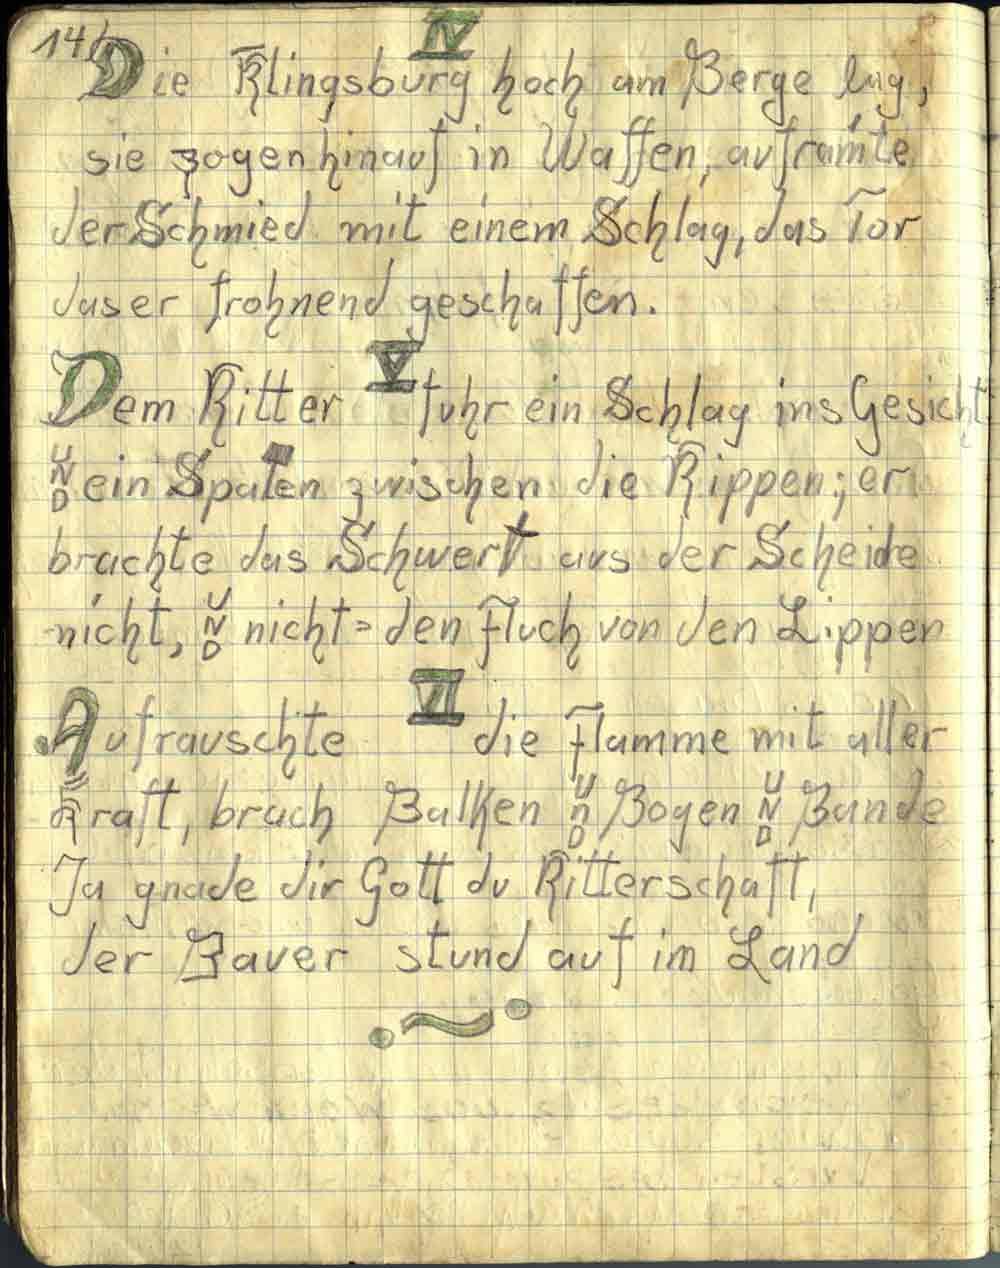 14/
IV
Die Klingsburg hoch am Berge lag,
sie zogen hinauf in Waffen, auframte
der Schmied mit einem Schlag, das Tor
das er frohnend geschaffen.
V
Dem Ritter fuhr ein Schlag ins Gesicht
UND ein Spaten zwischen die Rippen; er
brachte das Schwert aus der Scheide
nicht, UND nicht den Fluch von den Lippen
VI
Aufrauschte die Flamme mit aller
Kraft, brach Balken UND Bogen UND Bande
Ja gnade dir Gott du Ritterschaft,
der Bauer stund auf im Land